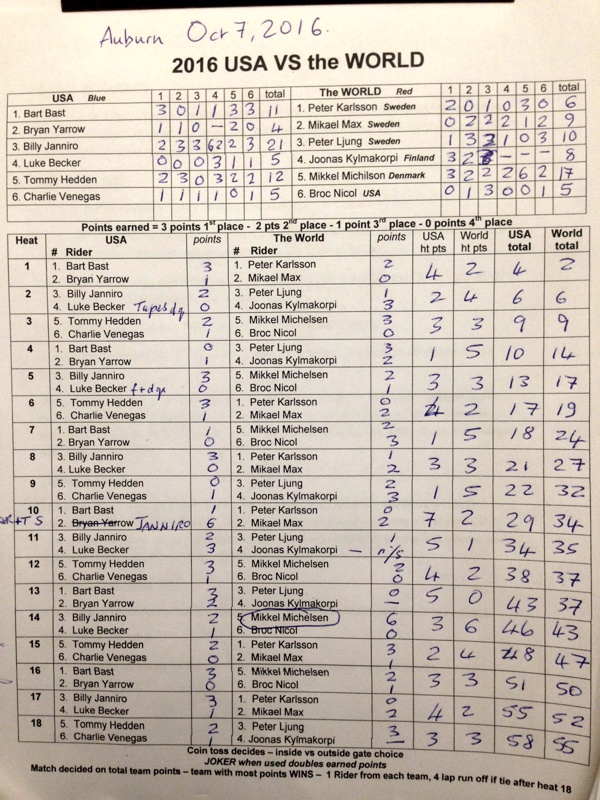 Auburn Oct 7, 2016.
2016 USA VS the WORLD
USA Blue 1 2 3 4 5 6 total The WORLD Red 1 2 3 4 5 6 total
1. Bart Bast 3 0 1 1 3 3 11 1. Peter Karlsson Sweden 2 0 1 0 3 0 6
2. Bryan Yarrow 1 1 0 - 2 0 4 2. Mikael Max Sweden 0 2 2 2 1 2 9
3. Billy Janniro 2 3 3 6 2 2 3 21 3. Peter Ljung Sweden 1 3 2 1 0 3 10
4. Luke Becker 0 0 0 3 1 1 5 4. Joonas Kylmakorpi Finland 3 2 3 - - - 8
5. Tommy Hedden 2 3 0 3 2 2 12 5. Mikkel Michilson Denmark 3 2 2 2 6 2 17
6. Charlie Venegas 1 1 1 1 0 1 5 6. Broc Nicol USA 0 1 3 0 0 1 5
Points earned = 3 points 1st place - 2 pts 2nd place - 1 point 3rd place - 0 points 4th place
Heat USA points The World points USA World USA World
# Rider # Rider ht pts ht pts total total
1 1. Bart Bast 3 1. Peter Karlsson 2 4 2 4 2
2. Bryan Yarrow 1 2. Mikael Max 0
2 3. Billy Janniro 2 3. Peter Ljung 1 2 4 6 6
4. Luke Becker Tapes dq 0 4. Joonas Kylmakorpi 3
3 5. Tommy Hedden 2 5. Mikkel Michelsen 3 3 3 9 9
6. Charlie Venegas 1 6. Broc Nicol 0
4 1. Bart Bast 0 3. Peter Ljung 3 1 5 10 14
2. Bryan Yarrow 1 4. Joonas Kylmakorpi 2
5 3. Billy Janniro 3 5. Mikkel Michelsen 2 3 3 13 17
4. Luke Becker f+dqx 0 6. Broc Nicol 1
6 5. Tommy Hedden 3 1. Peter Karlsson 0 4 2 17 19
6. Charlie Venegas 1 2. Mikael Max 2
7 1. Bart Bast 1 5. Mikkel Michelsen 2 1 5 18 24
2. Bryan Yarrow 0 6. Broc Nicol 3
8 3. Billy Janniro 3 1. Peter Karlsson 1 3 3 21 27
4. Luke Becker 0 2. Mikael Max 2
9 5. Tommy Hedden 0 3. Peter Ljung 2 1 5 22 32
6. Charlie Venegas 1 4. Joonas Kylmakorpi 3
10 1. Bart Bast 1 1. Peter Karlsson 0 7 2 29 34
+TS 2. Bryan Yarrow JANNIRO 6 2. Mikael Max 2
11 3. Billy Janniro 2 3. Peter Ljung 1 5 1 34 35
4. Luke Becker 3 4 Joonas Kylmakorpi - n/s
12 5. Tommy Hedden 3 5. Mikkel Michelsen 2 4 2 38 37
6. Charlie Venegas 1 6. Broc Nicol 0
13 1. Bart Bast 3 3. Peter Ljung 0 5 0 43 37
2. Bryan Yarrow 2 4. Joonas Kylmakorpi -
14 3. Billy Janniro 2 5. Mikkel Michelsen 6 3 6 46 43
4. Luke Becker 1 6. Broc Nicol 0
15 5. Tommy Hedden 2 1. Peter Karlsson 3 2 4 48 47
6. Charlie Venegas 0 2. Mikael Max 1
16 1. Bart Bast 3 5. Mikkel Michelsen 2 3 3 51 50
2. Bryan Yarrow 0 6. Broc Nicol 1
17 3. Billy Janniro 3 1. Peter Karlsson 0 4 2 55 52
4. Luke Becker 1 2. Mikael Max 2
18 5. Tommy Hedden 2 3. Peter Ljung 3 3 3 58 55
6. Charlie Venegas 1 4. Joonas Kylmakorpi -
Coin toss decides – inside vs outside gate choice
JOKER when used doubles earned points
Match decided on total team points – team with most points WINS – 1 Rider from each team, 4 lap run off if tie after heat 18